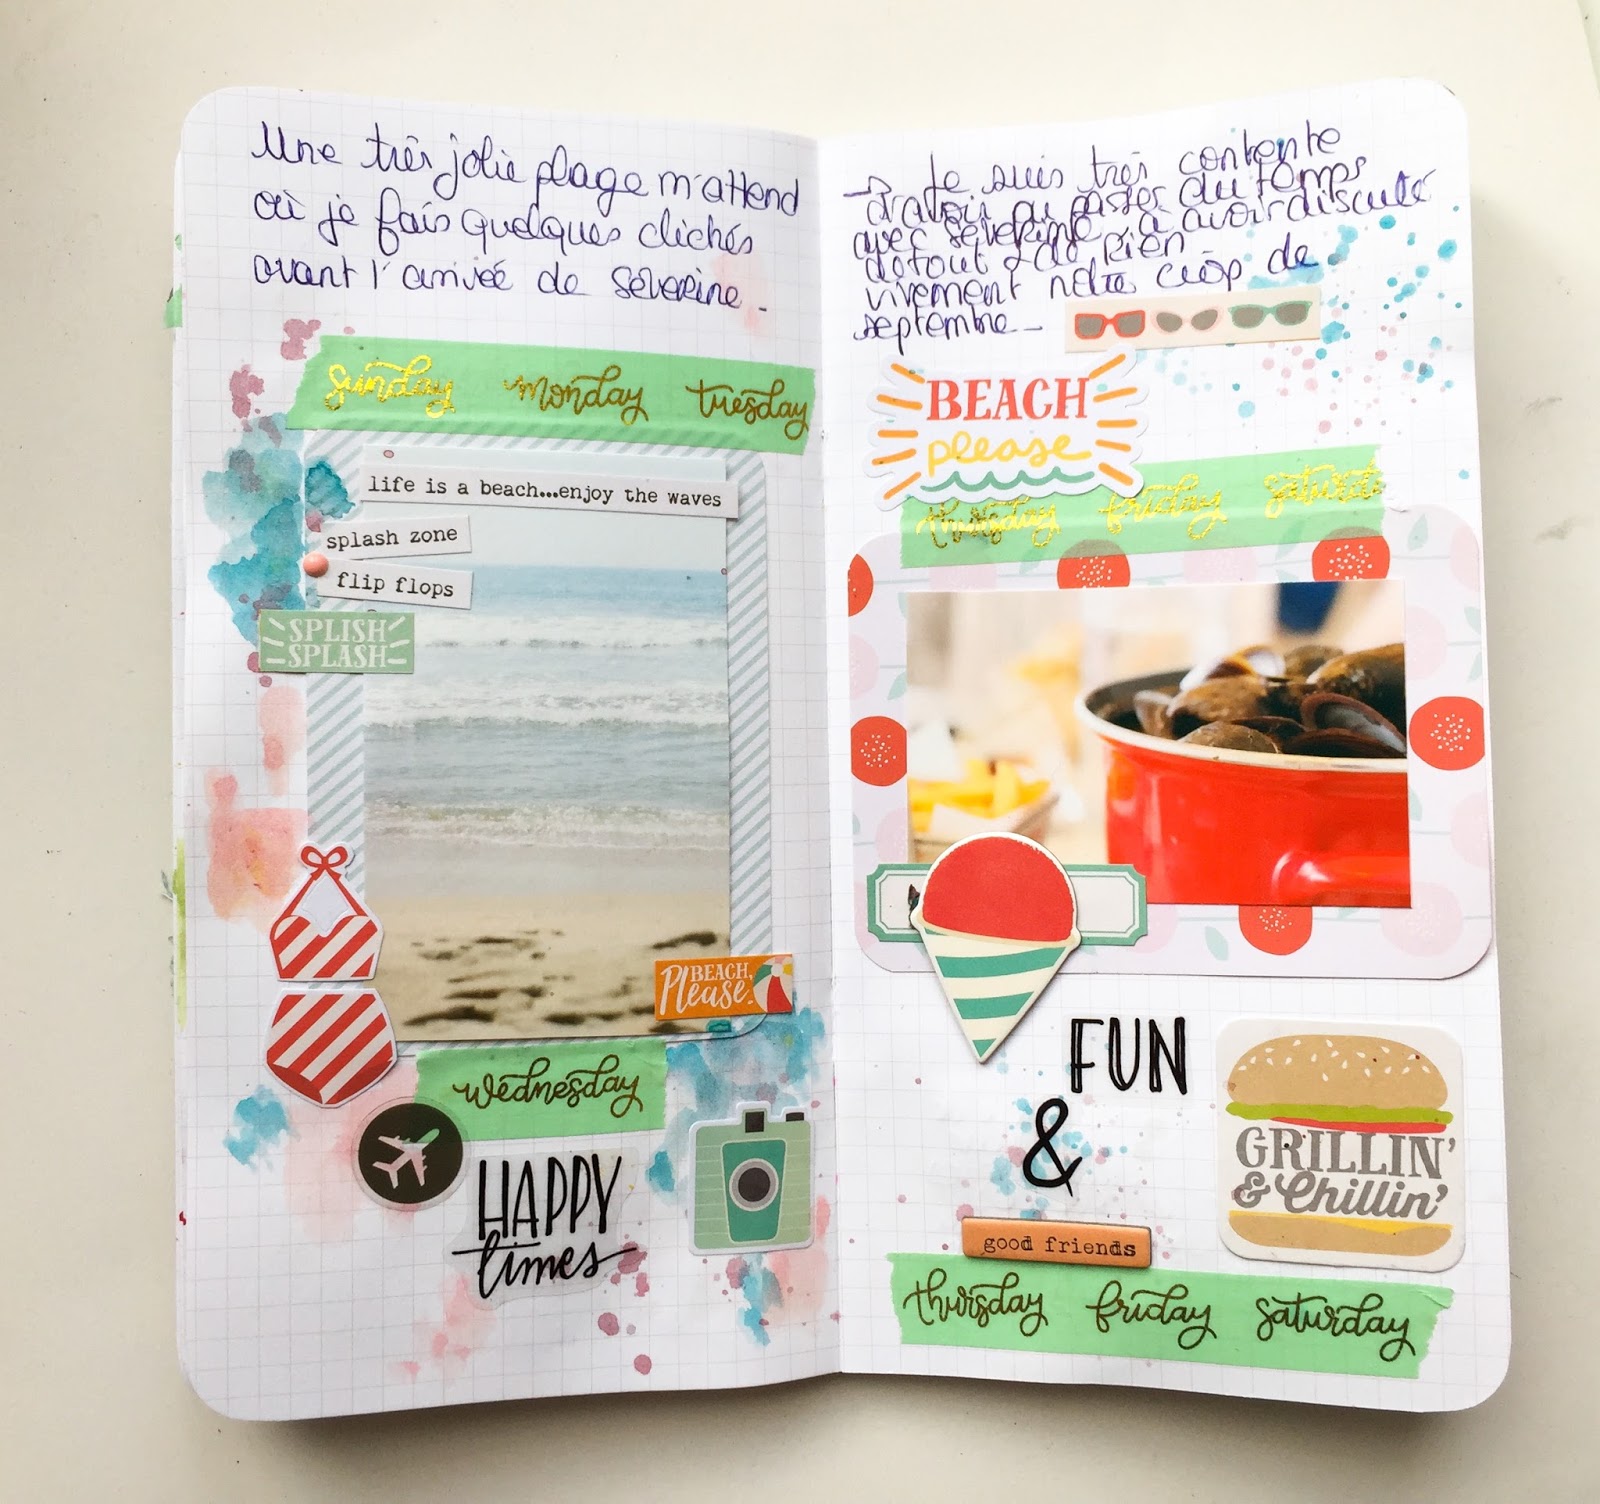 Une très jolie plage m'attend
où je fais quelques clichés
avant l'arrivée de séverine.
sunday monday tuesday
life is a beach...enjoy the waves
splash zone
flip flops
SPLISH
SPLASH
BEACH,
Please.
wednesday
HAPPY
times
→ Je suis très contente
d'avoir pu passer du temps
avec séverine, à avoir discuté
de tout & de rien
vivement notre crop de
septembre -
BEACH
please
thursday friday saturda
FUN
&
GRILLIN'
& Chillin'
good friends
thursday friday saturday